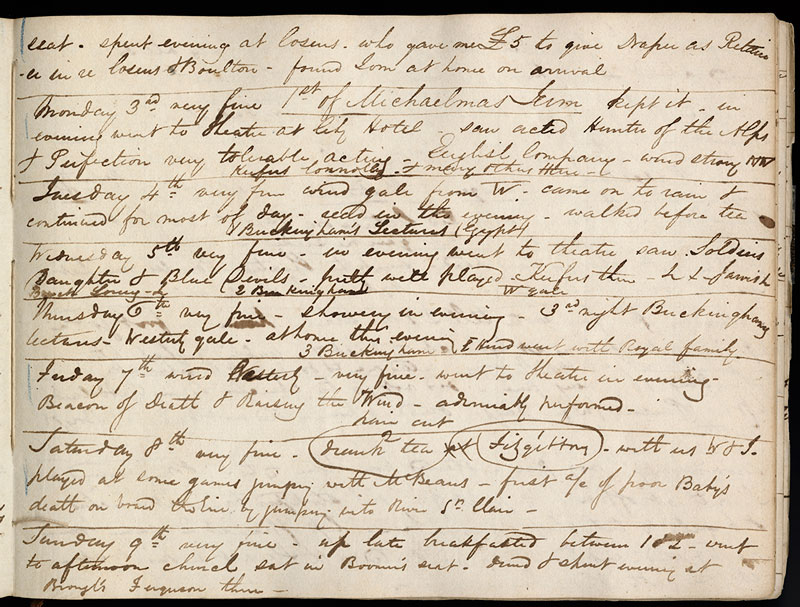 seat - spent evening at Cosens - who gave me £5 to give Draper as Retain
-er in re Cosens & Boulton - found Tom at home on arrival
Monday 3rd very fine 1st of Michaelmas Term kept it - in
evening went to theatre at City Hotel - saw acted Hunter of the Alps
& Perfection very tolerable acting - English Company - wind strong NW
Rufus Connolly & many others there -
Tuesday 4th very fine wind gale from W - came on to rain &
continued for most of day - read in the evening - walked before tea
& Buckingham's Lectures (Egypt)
Wednesday 5th very fine - in evening went to theatre saw Soldiers
Daughter & Blue Devils - both well played - Rufus there - & Jarvish
2 Buckingham W gale
Thursday 6th very fine - showery in evening - 3rd night Buckinghams
lectures - Westerly gale - at home this evening
3 Buckingham & went with Royal family
Friday 7th wind Easterly - very fine - went to theatre in evening -
Beacon of Death & Raising the Wind - admirably performed -
Saturday 8th very fine - drank tea at Fitzgibbons - with us W & J -
played at some games jumping with McBeans - first a/c of poor Baby's
death on board the by jumping into River St Clair -
Sunday 9th very fine - up late breakfasted between 1 & 2 - went
to afternoon church sat in Boomer's seat - dined & spent evening at
Brough's Ferguson there -